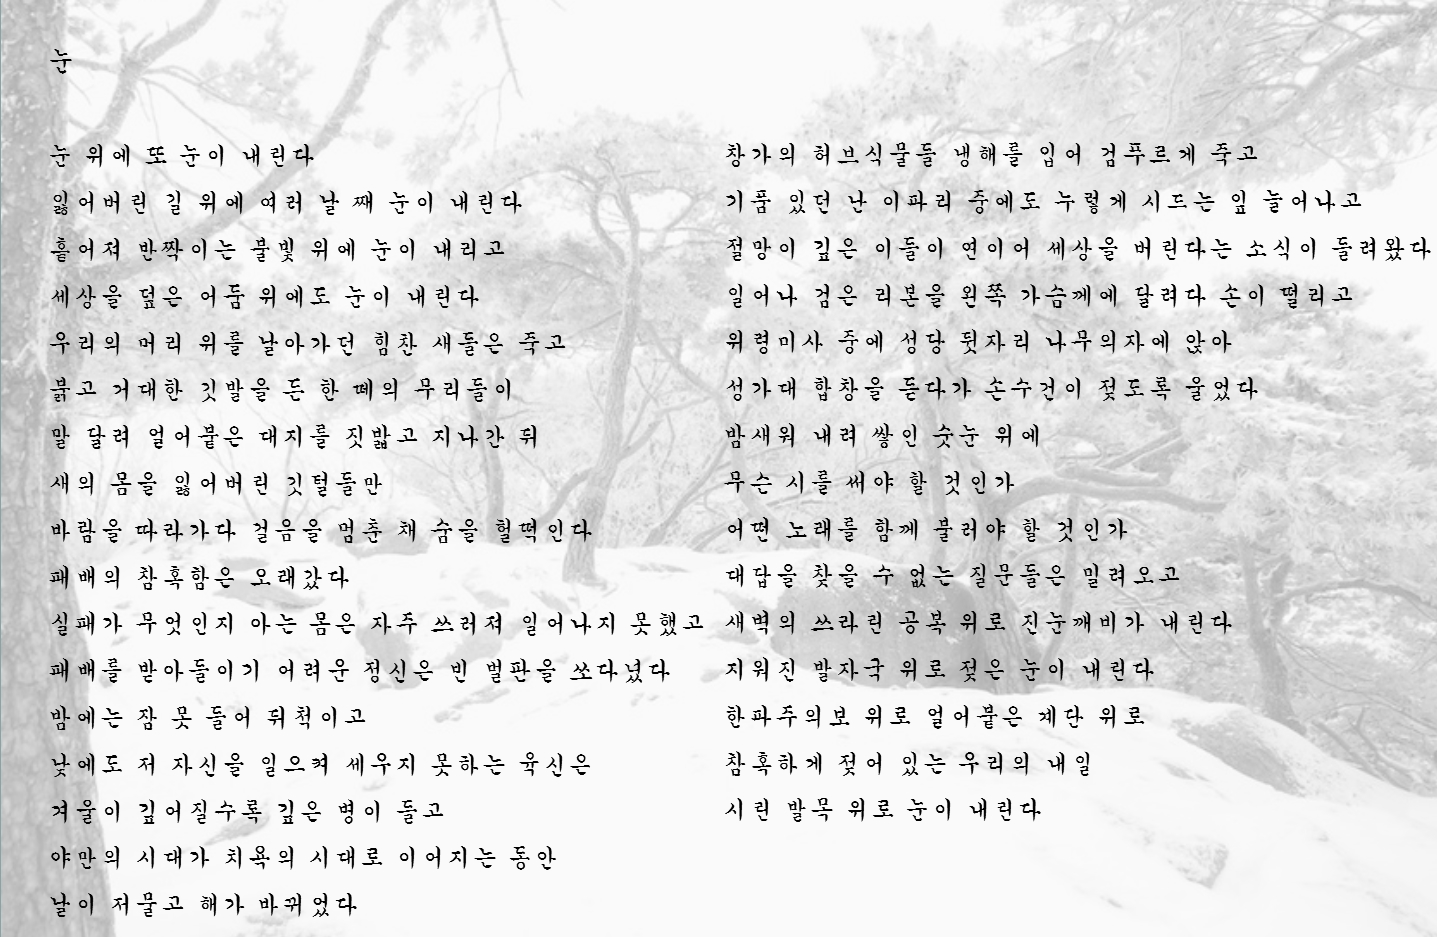 눈
눈 위에 또 눈이 내린다
잃어버린 길 위에 여러 날 째 눈이 내린다
흩어져 반짝이는 불빛 위에 눈이 내리고
세상을 덮은 어둠 위에도 눈이 내린다
우리의 머리 위를 날아가던 힘찬 새들은 죽고
붉고 거대한 깃발을 든 한 떼의 무리들이
말 달려 얼어붙은 대지를 짓밟고 지나간 뒤
새의 몸을 잃어버린 깃털들만
바람을 따라가다 걸음을 멈춘 채 숨을 헐떡인다
패배의 참혹함은 오래갔다
실패가 무엇인지 아는 몸은 자주 쓰러져 일어나지 못했고
패배를 받아들이기 어려운 정신은 빈 벌판을 쏘다녔다
밤에는 잠 못 들어 뒤척이고
낮에도 저 자신을 일으켜 세우지 못하는 육신은
겨울이 깊어질수록 깊은 병이 들고
야만의 시대가 치욕의 시대로 이어지는 동안
날이 저물고 해가 바뀌었다
창가의 허브식물들 냉해를 입어 검푸르게 죽고
기품 있던 난 이파리 중에도 누렇게 시드는 잎 늘어나고
절망이 깊은 이들이 연이어 세상을 버린다는 소식이 들려왔다
일어나 검은 리본을 왼쪽 가슴께에 달려다 손이 떨리고
위령미사 중에 성당 뒷자리 나무의자에 앉아
성가대 합창을 듣다가 손수건이 젖도록 울었다
밤새워 내려 쌓인 숫눈 위에
무슨 시를 써야 할 것인가
어떤 노래를 함께 불러야 할 것인가
대답을 찾을 수 없는 질문들은 밀려오고
새벽의 쓰라린 공복 위로 진눈깨비가 내린다
지워진 발자국 위로 젖은 눈이 내린다
한파주의보 위로 얼어붙은 계단 위로
참혹하게 젖어 있는 우리의 내일
시린 발목 위로 눈이 내린다